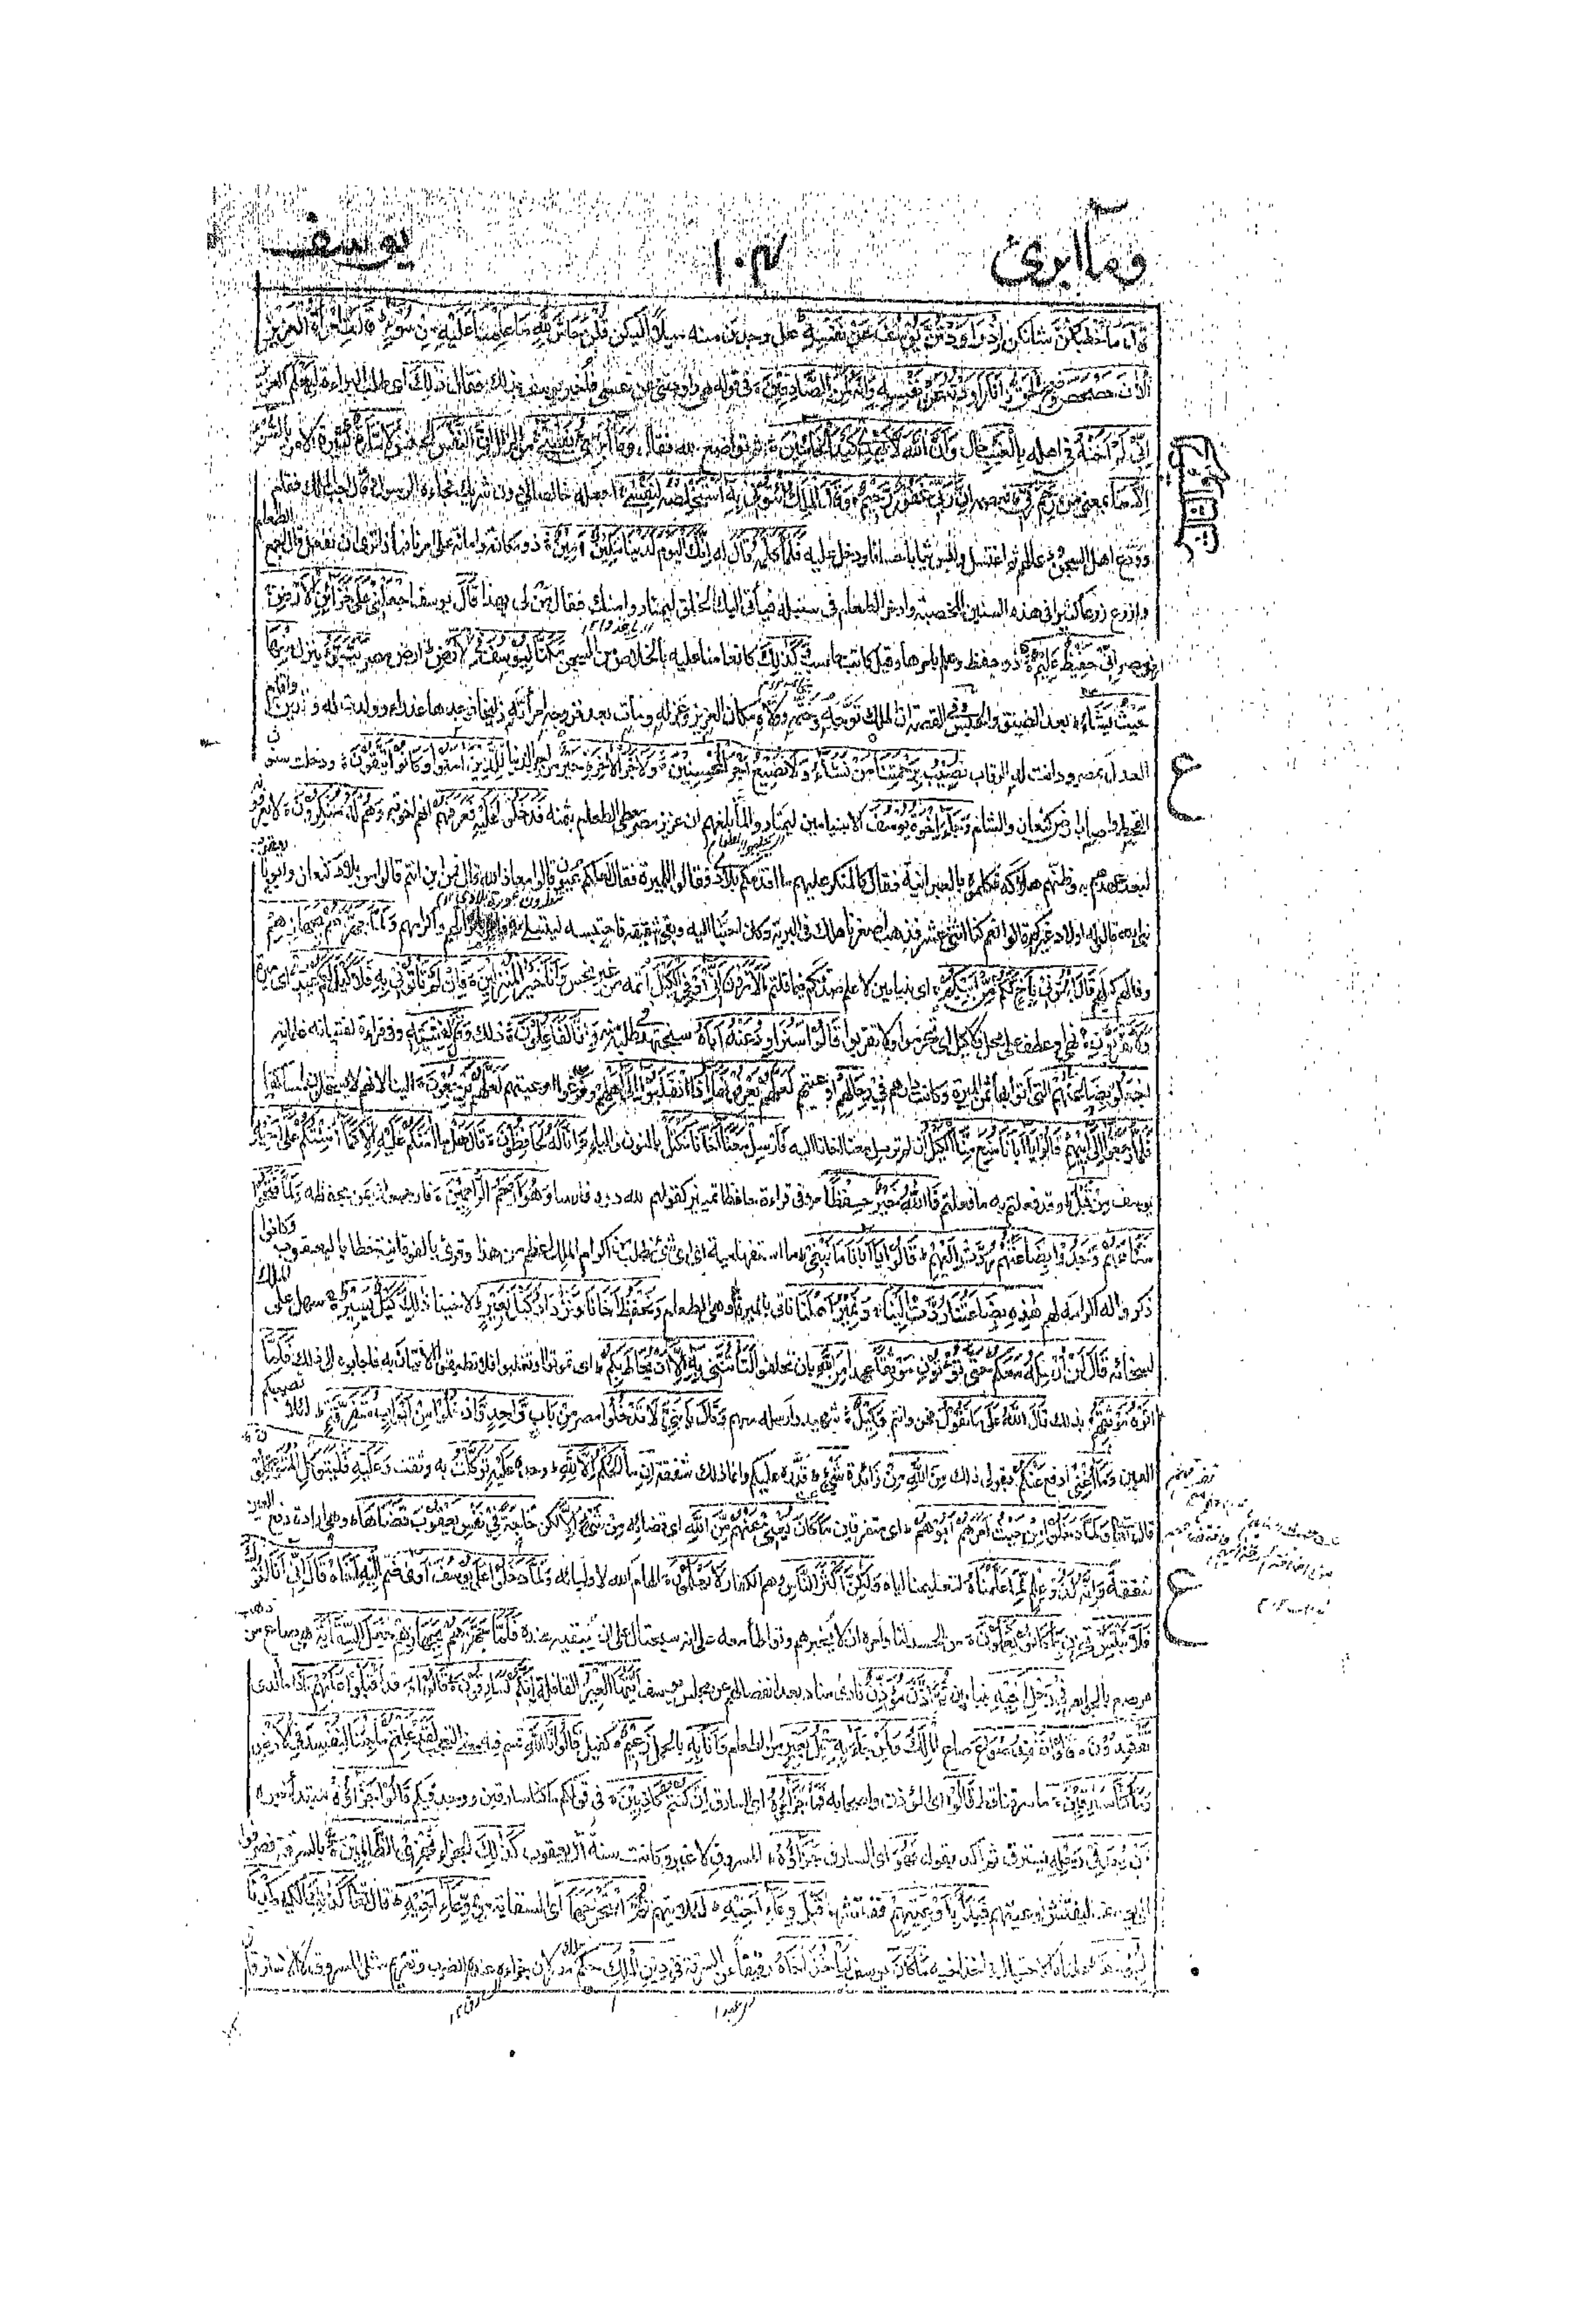 وما ابرئ
١٠٣
يوسف
قال ما خطبكن شانكن اذ راودتن يوسف عن نفسه هل وجدتن منه ميلا اليكن قلن حاش لله ما علمنا عليه من سوء قالت امرأة العزيز
الآن حصحص وضح الحق انا راودته عن نفسه وانه لمن الصادقين في قوله هي راودتني عن نفسي فاخبر يوسف بذلك فقال ذلك اي طلب البراءة ليعلم العزيز
اني لم اخنه في اهله بالغيب حال وان الله لا يهدي كيد الخائنين ثم تواضع لله فقال وما ابرئ نفسي من الزلل ان النفس الجنس لامارة كثيرة الامر بالسوء
الا ما بمعنى من رحم ربي فعصمه ان ربي غفور رحيم وقال الملك ائتوني به استخلصه لنفسي اجعله خالصا لي دون شريك فجاءه الرسول وقال اجب الملك فقام
وودع اهل السجن ودعا لهم ثم اغتسل ولبس ثيابا حسانا ودخل عليه فلما كلمه قال له انك اليوم لدينا مكين امين ذو مكانة وامانة على امرنا فماذا ترى ان نفعل قال اجمع الطعام
وازرع زرعا كثيرا في هذه السنين المخصبة وادخر الطعام في سنبله فياتي اليك الخلق ليمتاروا منك فقال من لي بهذا قال يوسف اجعلني على خزائن الارض
ارض مصر اني حفيظ عليم ذو حفظ وعلم بامرها وقيل كاتب حاسب وكذلك كانعامنا عليه بالخلاص من السجن مكنا ليوسف في الارض ارض مصر يتبوا ينزل منها
حيث يشاء بعد الضيق والحبس وفي القصة ان الملك توجه وختمه وولاه مكان العزيز وعزله ومات بعد فزوجه امرأته زليخا فوجدها عذراء وولدت له ولدين واقام
العدل بمصر ودانت له الرقاب نصيب برحمتنا من نشاء ولا نضيع اجر المحسنين ولاجر الآخرة خير من اجر الدنيا للذين آمنوا وكانوا يتقون ودخلت سنو
القحط واصاب ارض كنعان والشام وجاء اخوة يوسف الا بنيامين ليمتاروا لما بلغهم ان عزيز مصر يعطي الطعام بثمنه فدخلوا عليه فعرفهم انهم اخوته وهم له منكرون لا يعرفونه
لبعد عهدهم به وظنهم هلاكه فكلموه بالعبرانية فقال كالمنكر عليهم ما اقدمكم بلادي فقالوا للميرة فقال لعلكم عيون قالوا معاذ الله قال فمن اين انتم قالوا من بلاد كنعان وابونا يعقوب
نبي الله قال وله اولاد غيركم قالوا نعم كنا اثني عشر فذهب اصغرنا هلك في البرية وكان احبنا اليه وبقي شقيقه فاحتبسه ليتسلى به فامر بانزالهم واكرامهم ولما جهزهم بجهازهم
وفى لهم كيلهم قال ائتوني باخ لكم من ابيكم اي بنيامين لاعلم صدقكم فيما قلتم الا ترون اني اوفي الكيل اتمه من غير بخس وانا خير المنزلين فان لم تاتوني به فلا كيل لكم عندي اي ميرة
ولا تقربون نهي او عطف على محل فلا كيل اي تحرموا ولا تقربوا قالوا سنراود عنه اباه سنجتهد في طلبه منه وانا لفاعلون ذلك وقال لفتيته وفي قراءة لفتيانه غلمانه
اجعلوا بضاعتهم التي اتوا بها ثمن الميرة وكانت دراهم في رحالهم اوعيتهم لعلهم يعرفونها اذا انقلبوا الى اهلهم وفرغوا اوعيتهم لعلهم يرجعون الينا لانهم لا يستحلون امساكها
فلما رجعوا الى ابيهم قالوا يا ابانا منع منا الكيل ان لم ترسل معنا اخانا اليه فارسل معنا اخانا نكتل بالنون والياء وانا له لحافظون قال هل ما آمنكم عليه الا كما امنتكم على اخيه
يوسف من قبل وقد فعلتم به ما فعلتم فالله خير حفظا وفي قراءة حافظا تمييز كقولهم لله دره فارسا وهو ارحم الراحمين فارجو ان يمن بحفظه ولما فتحوا
متاعهم وجدوا بضاعتهم ردت اليهم قالوا يا ابانا ما نبغي ما استفهامية اي اي شئ نطلب من اكرام الملك اعظم من هذا وقرئ بالفوقانية خطابا ليعقوب وكانوا
ذكروا له اكرامه لهم هذه بضاعتنا ردت الينا ونمير اهلنا ناتي بالميرة لهم وهي الطعام ونحفظ اخانا ونزداد كيل بعير لاخينا ذلك كيل يسير سهل على الملك
لسخائه قال لن ارسله معكم حتى تؤتون موثقا عهدا من الله بان تحلفوا لتاتنني به الا ان يحاط بكم اي تموتوا او تغلبوا فلا تطيقوا الاتيان به فاجابوه الى ذلك فلما
آتوه موثقهم بذلك قال الله على ما نقول نحن وانتم وكيل شهيد وارسله معهم وقال يا بني لا تدخلوا مصر من باب واحد وادخلوا من ابواب متفرقة لئلا تصيبكم
العين وما اغني ادفع عنكم بقولي ذلك من الله من زائدة شئ قدره عليكم وانما ذلك شفقة ان ما الحكم الا لله وحده عليه توكلت به وثقت وعليه فليتوكل المتوكلون
قال تعالى ولما دخلوا من حيث امرهم ابوهم اي متفرقين ما كان يغني عنهم من الله اي قضائه من شئ الا لكن حاجة في نفس يعقوب قضاها وهي ارادة دفع العين
شفقة وانه لذو علم لما علمناه لتعليمنا اياه ولكن اكثر الناس وهم الكفار لا يعلمون الهام الله لاوليائه ولما دخلوا على يوسف آوى ضم اليه اخاه قال اني انا اخوك
فلا تبتئس تحزن بما كانوا يعملون من الحسد لنا وامره ان لا يخبرهم وتواطا معه على انه سيحتال على ان يبقيه عنده فلما جهزهم بجهازهم جعل السقاية هي صاع من ذهب
مرصع بالجواهر في رحل اخيه بنيامين ثم اذن مؤذن نادى مناد بعد انفصالهم عن مجلس يوسف ايتها العير القافلة انكم لسارقون قالوا وقد اقبلوا عليهم ماذا ما الذي
تفقدون قالوا نفقد صواع صاع الملك ولمن جاء به حمل بعير من الطعام وانا به بالحمل زعيم كفيل قالوا تالله قسم فيه معنى التعجب لقد علمتم ما جئنا لنفسد في الارض
وما كنا سارقين ما سرقنا قط قالوا اي المؤذن واصحابه فما جزاؤه اي السارق ان كنتم كاذبين في قولكم ما كنا سارقين ووجد فيكم قالوا جزاؤه مبتدأ خبره
من وجد في رحله يسترق ثم اكد بقوله فهو اي السارق جزاؤه اي المسروق لا غير وكانت سنة آل يعقوب كذلك الجزاء نجزي الظالمين بالسرقة فصرفوا
الى يوسف لتفتيش اوعيتهم فبدأ باوعيتهم ففتشها قبل وعاء اخيه لئلا يتهم ثم استخرجها اي السقاية من وعاء اخيه قال تعالى كذلك الكيد كدنا
ليوسف علمناه الاحتيال في اخذ اخيه ما كان يوسف لياخذ اخاه رقيقا عن السرقة في دين الملك حكم ملك مصر لان جزاءه عنده الضرب وتغريم مثلي المسروق لا الاسترقاق
ع
ع